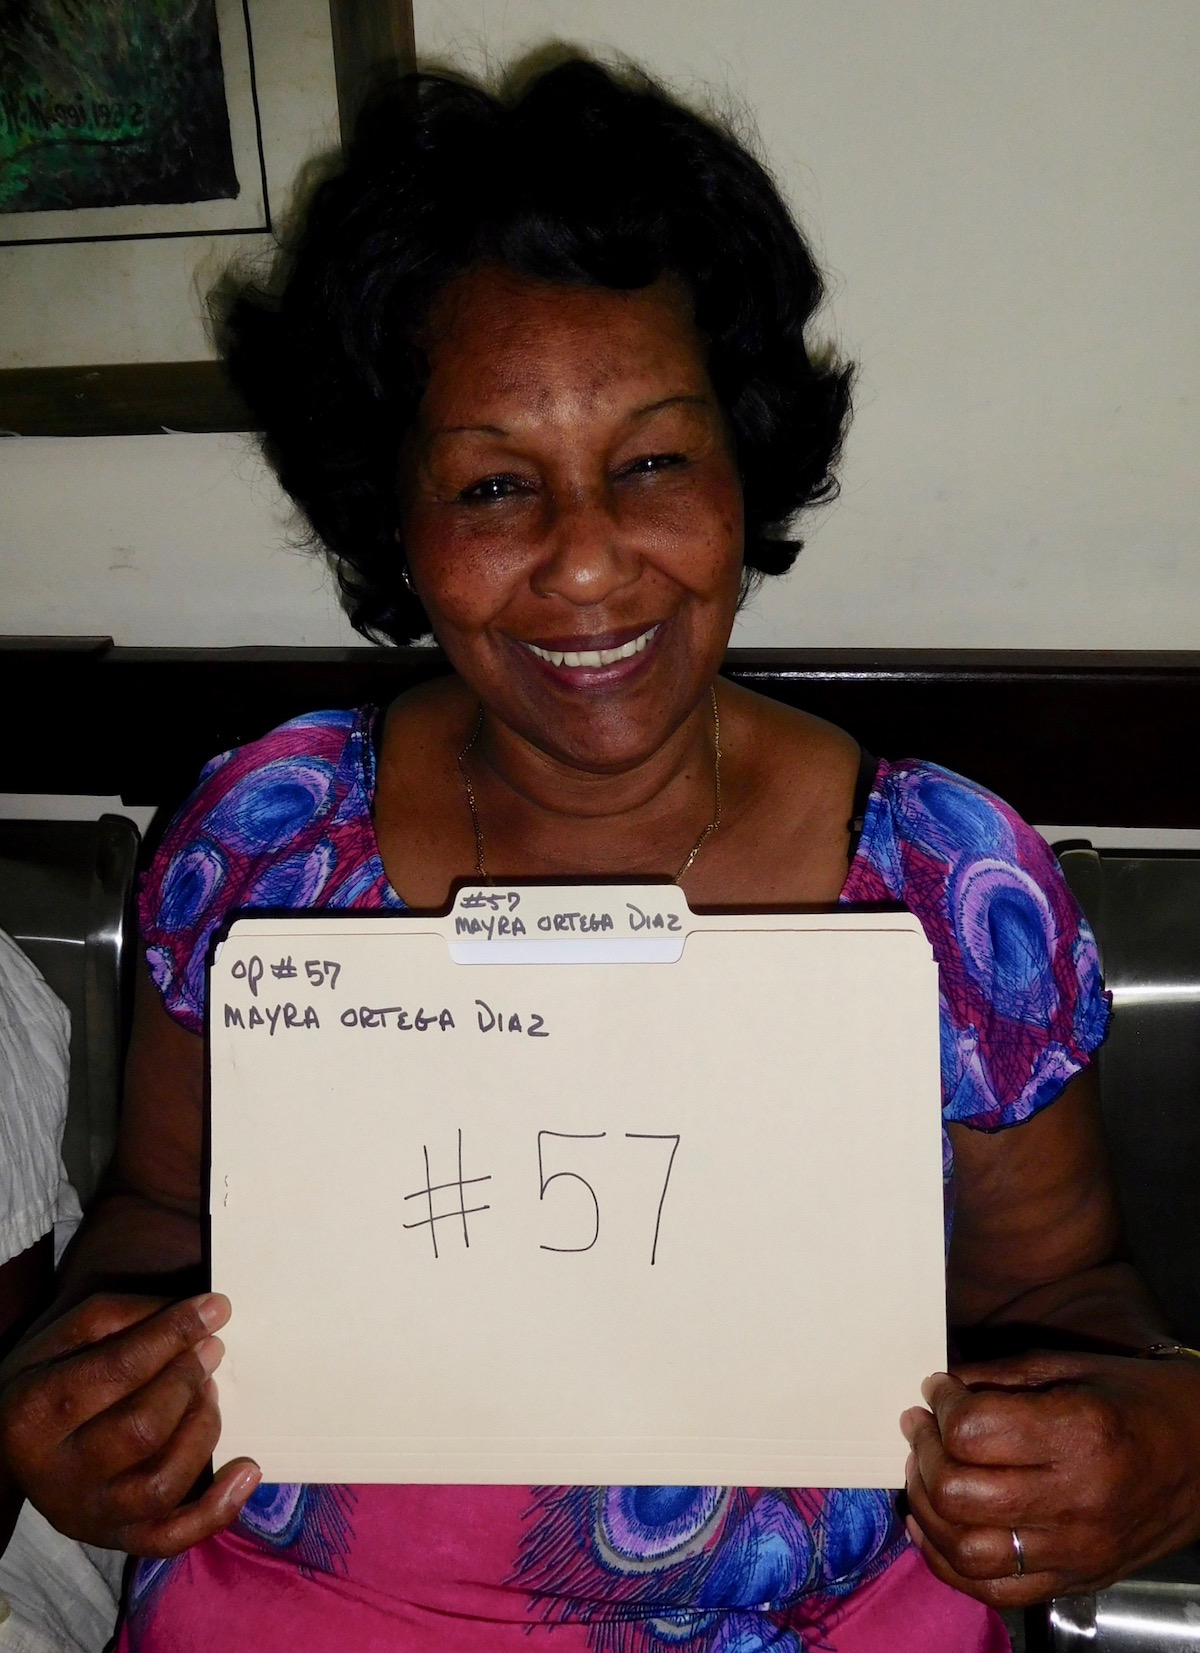 #57
MAYRA ORTEGA DIAZ
OP #57
MAYRA ORTEGA DIAZ
#57